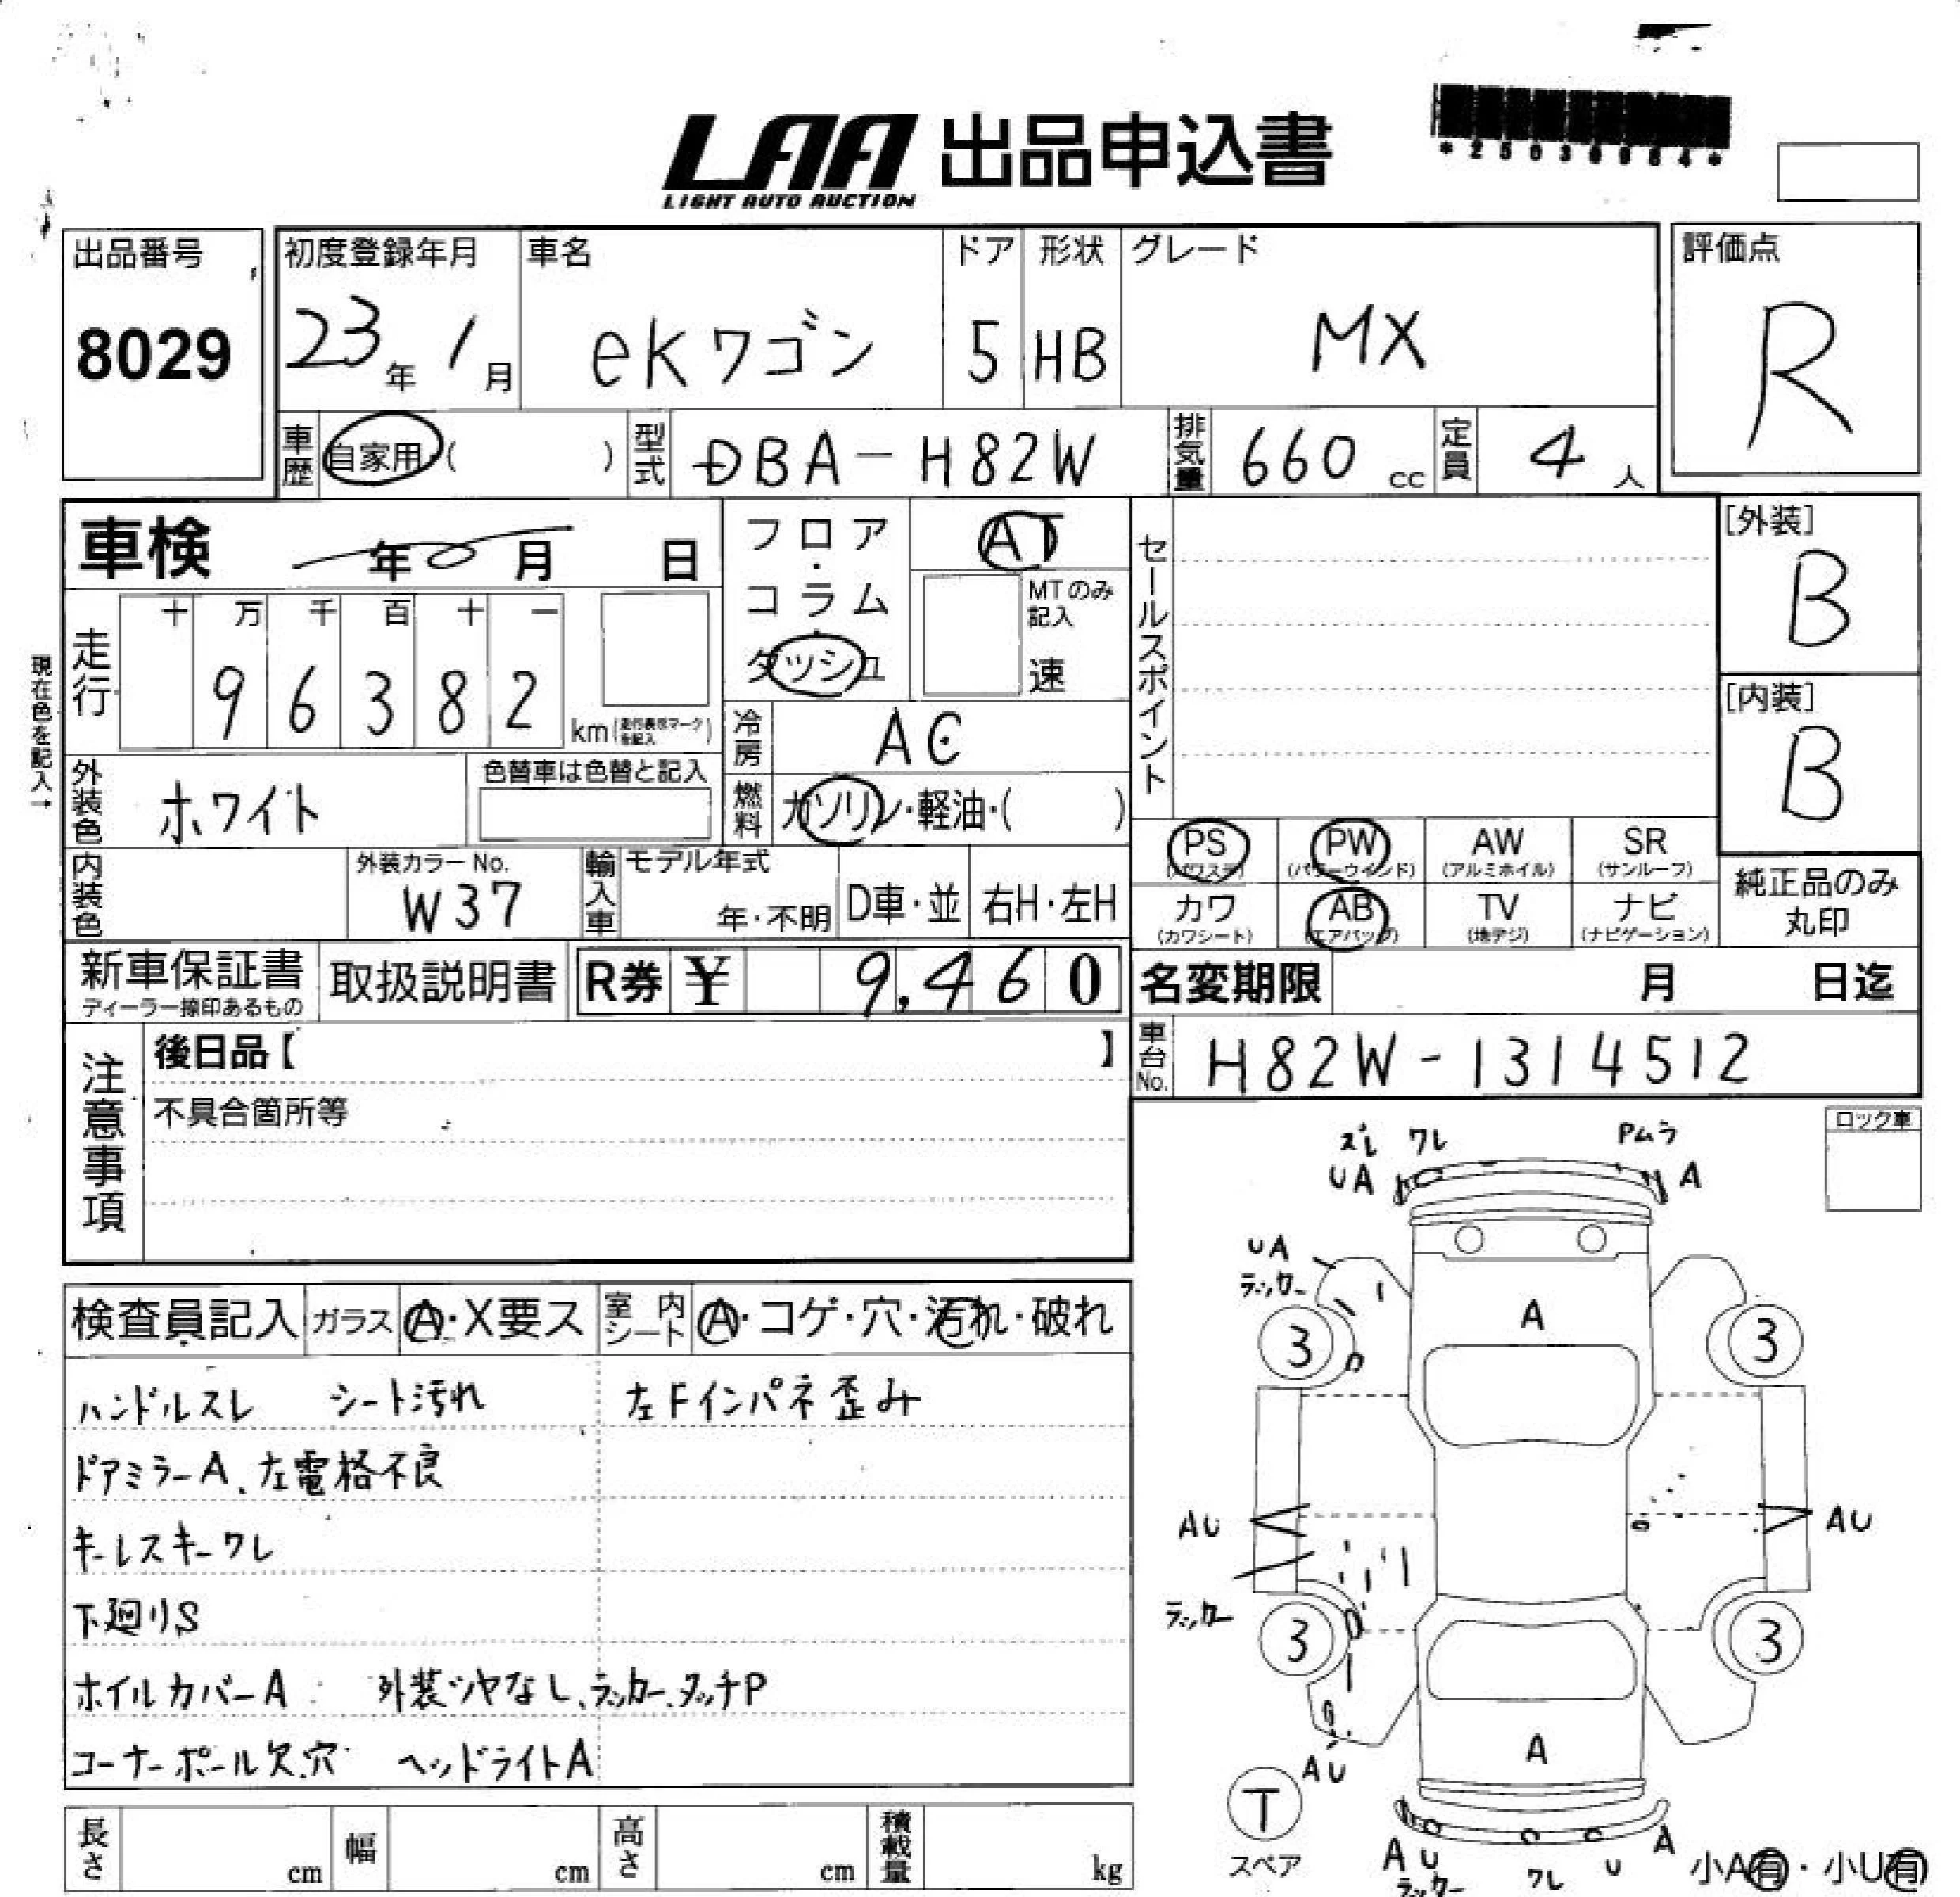 LAA 出品申込書
LIGHT AUTO AUCTION
出品番号
8029
初度登録年月
23年 1月
車名
eKワゴン
ドア
5
形状
HB
グレード
MX
評価点
R
車歴 自家用 ( )
型式 DBA-H82W
排気量 660 cc
定員 4 人
車検 年 月 日
フロア・コラム・ダッシュ
AT
MTのみ記入
速
セールスポイント
[外装]
B
[内装]
B
現在色を記入→
走行
十 万 千 百 十 一
9 6 3 8 2
km (走行表示マークを記入)
冷房 AC
外装色 ホワイト
色替車は色替と記入
燃料 ガソリン・軽油・( )
PS (パワステ) PW (パワーウインド) AW (アルミホイル) SR (サンルーフ)
カワ (カワシート) AB (エアバッグ) TV (地デジ) ナビ (ナビゲーション)
純正品のみ
丸印
内装色
外装カラーNo.
W37
輸入車
モデル年式
年・不明
D車・並
右H・左H
新車保証書
ディーラー捺印あるもの
取扱説明書
R券 ¥ 9,460
名変期限 月 日迄
注意事項
後日品【 】
不具合箇所等
車台No. H82W-1314512
ロック車
ズレ ワレ Pムラ
UA A
UA
ラッカー
A
3 3
検査員記入 ガラス A・X要ス 室内シート A・コゲ・穴・汚れ・破れ
ハンドルスレ シート汚れ 左Fインパネ歪み
ドアミラーA、左電格不良
キーレスキーワレ
下廻りS
ホイルカバーA 外装ツヤなし、ラッカー、タッチP
コーナーポール欠、穴 ヘッドライトA
AU AU
ラッカー
3 3
A
AU
T
スペア
A U ワレ U A
ラッカー
小A有・小U有
長さ cm
幅 cm
高さ cm
積載量 kg